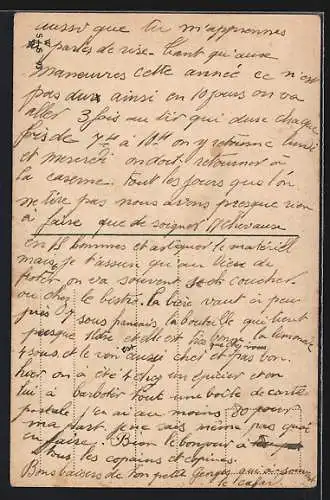 aussi que tu m'apprennes
partes de rise. tant qu'aux
manœuvres cette année ce n'est
pas dux ainsi en 10 jours on va
aller 3 fois au tir qui dure chaque
fois de 7H à 10H on y retourne lundi
et mercredi on doit retourner à
la caserne. tout les jours que l'on
ne tire pas nous avons presque rien
à faire que de soigner chevaux
en 18 hommes et astiquer le matériel
mais je t'assure qu'au lieu de
froter on va souvent se coucher
ou chez le bistro. la bière vaut à peu
près 7 sous français la bouteille qui tient
presque litre et elle est la limonade
4 sous et le vin est aussi cher et pas bon.
hier on a été 4 chez un épicier et on
lui a barboter tout une boîte de carte
postale j'en ai au moins 80 pour
ma part je ne sais même pas quoi
en faire. Bien le bonjour à
tous les copains et copines.
Bons baisers de ton petit Georges qui
le cafar